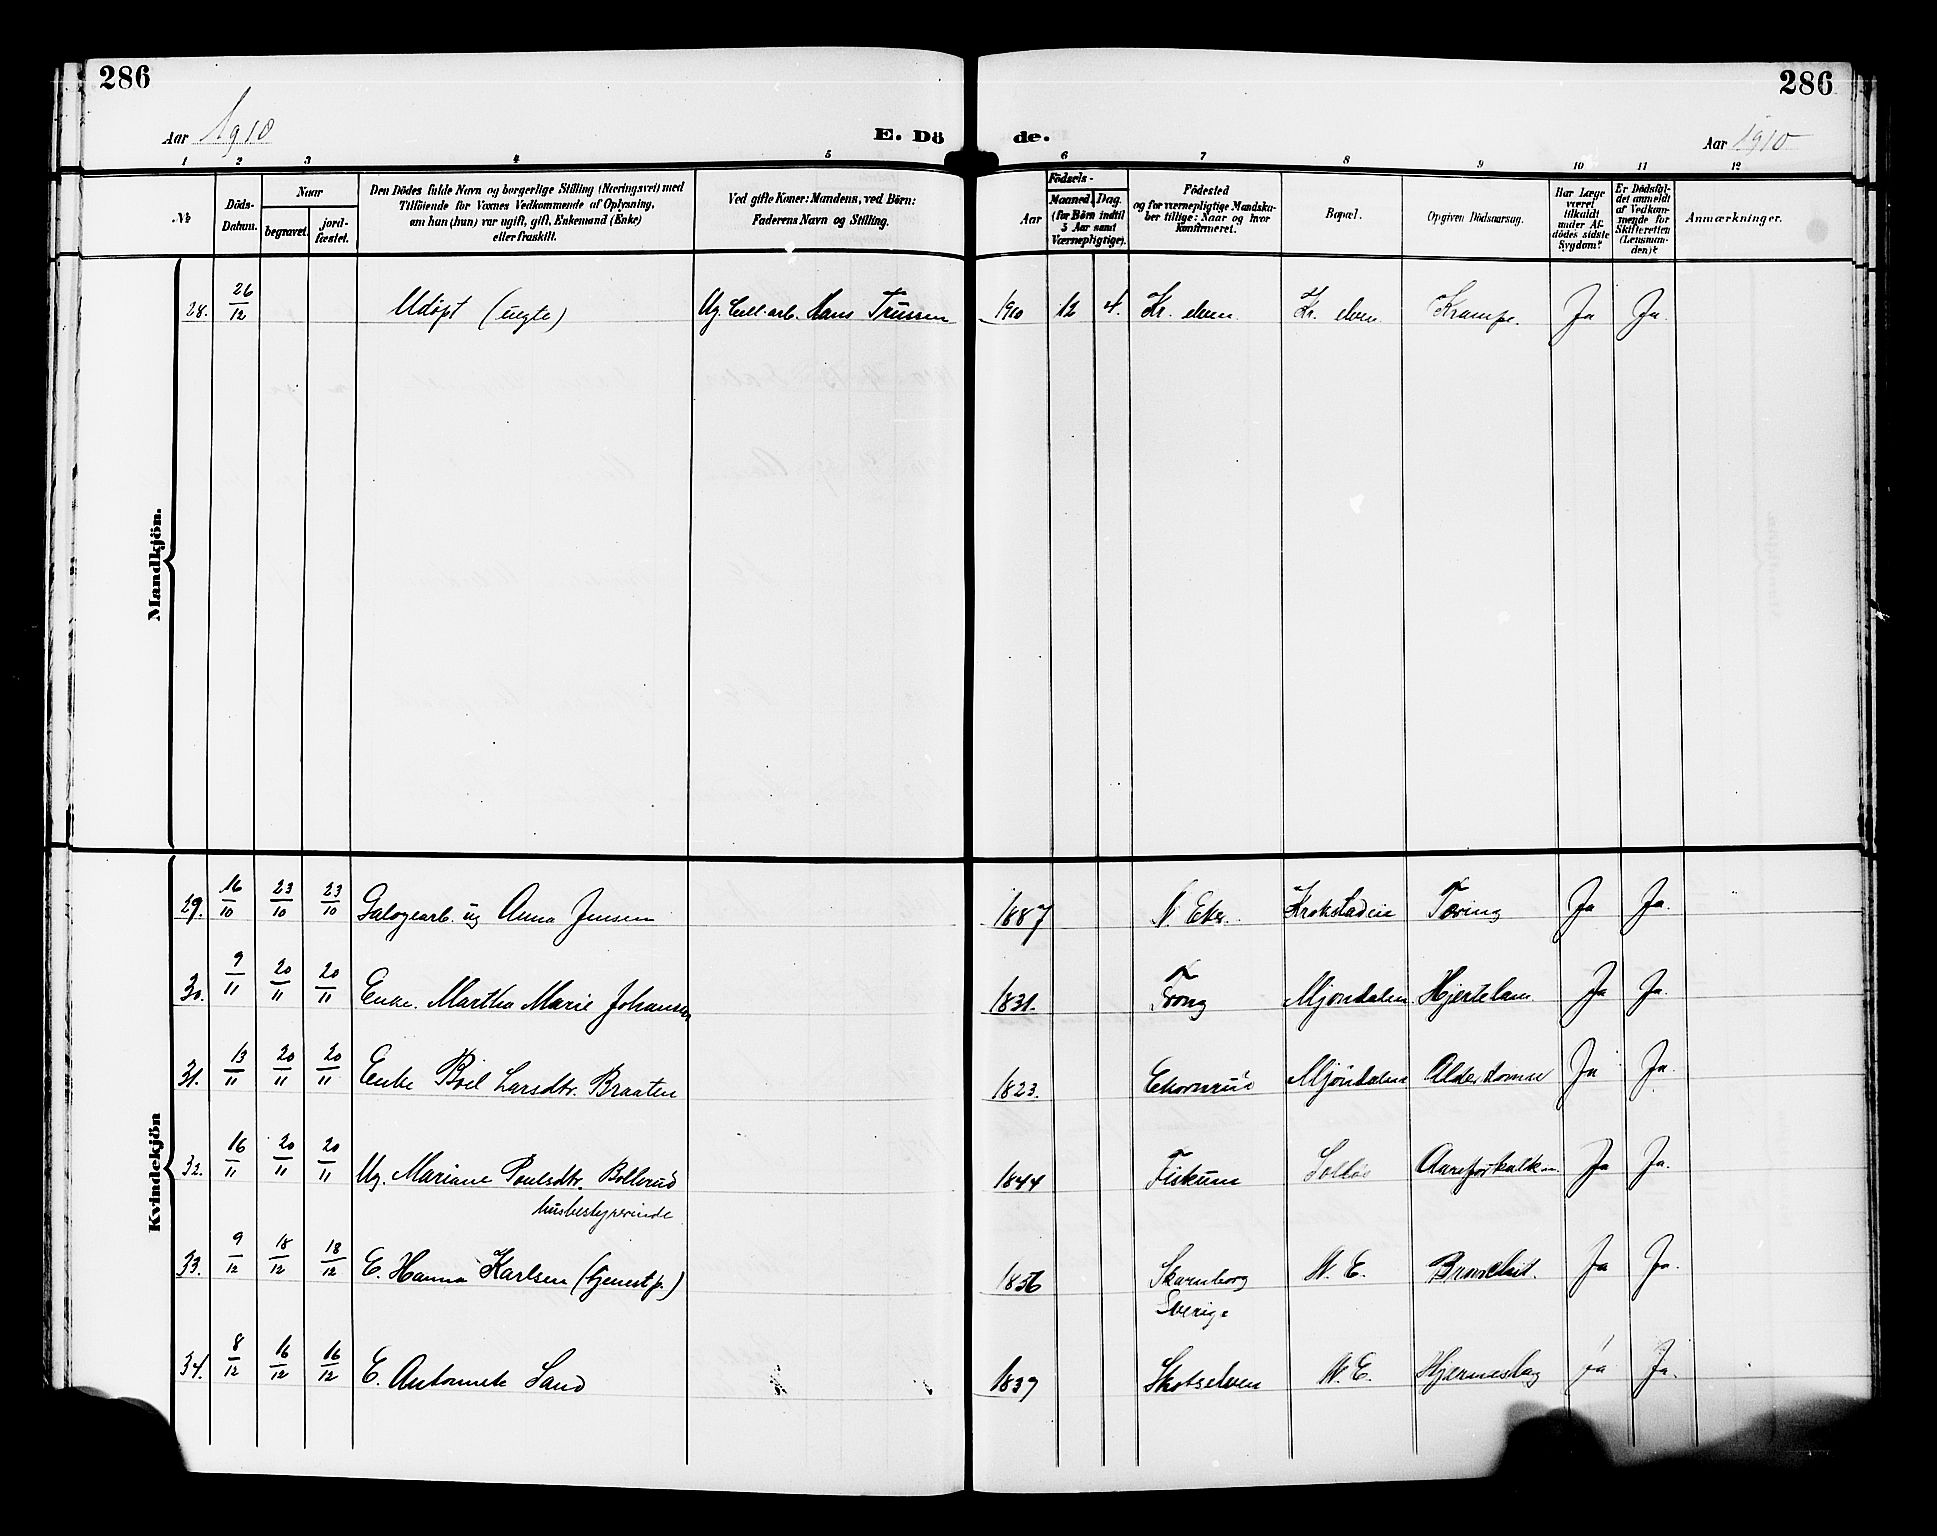 286
286
Aar 1910
E. Dö
de.
Aar 1910
1 2 3 4 5 6 7 8 9 10 11 12
№
Döds-
Datum.
Naar
begravet.
jord-
fæstet.
Den Dödes fulde Navn og borgerlige Stilling (Næringsvei) med
Tilföiende for Voxnes Vedkommende af Oplysning,
om han (hun) var ugift, gift, Enkemand (Enke)
eller fraskilt.
Ved gifte Koner: Mandens, ved Börn:
Faderens Navn og Stilling.
Födsels-
Aar
Maaned.
Dag.
(for Börn indtil
5 Aar samt
Værnepligtige).
Födested
og for værnepligtige Mandska-
ber tillige: Naar og hvor
konfirmeret.
Bopæl.
Opgiven Dödsaarsag.
Har Læge
været
tilkaldt
under Af-
dödes sidste
Sygdom?
Er Dödsfal-
det anmeldt
af Vedkom-
mende for
Skifteretten
(Lensman-
den)?
Anmærkninger.
Mandkjön.
28. 26/12 Udøpt (uegte) Ug. Cell. arb. Hans Trussen 1910 12 4. Kr. elven Kr. elven Krampe. Ja Ja.
Kvindekjön
29. 16/10 23/10 23/10 Galogearb. ug Anna Jensen 1887 N. Eker. Krokstadelv Tæring Ja Ja.
30. 9/11 20/11 20/11 Enke. Martha Marie Johansen 1831. Mjøndalen. Hjertelam Ja Ja.
31. 13/11 20/11 20/11 Enke Boel Larsdtr. Braaten 1823. Ekornrud Mjøndalen Alderdomme Ja Ja.
32. 16/11 20/11 20/11 Ug. Mariane Poulsdtr. Bollerud 1844 Fiskum Aareforkalkn. Ja Ja.
husbestyrerinde
33. 9/12 18/12 18/12 E. Hanna Karlsen (tjenestp.) 1856 Skarnborg N. E. Ja Ja.
Sverige
34. 8/12 16/12 16/12 E. Antonnete Sand 1839 Skotselven N. E. Hjerneslag ja Ja.